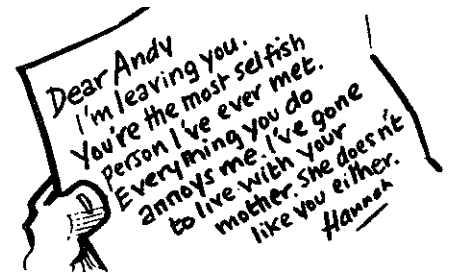 Dear Andy
I'm leaving you.
You're the most selfish
person I've ever met.
Everything you do
annoys me. I've gone
to live with your
mother. She doesn't
like you either.
Hannah